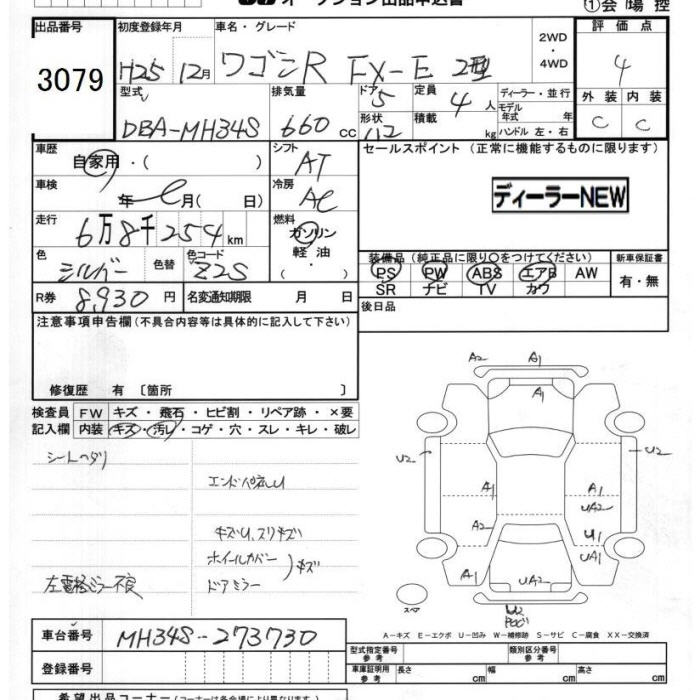 オークション出品申込書 ①会場控
出品番号 初度登録年月 車名・グレード 評価点
3079 H25 12月 ワゴンR FX-E 2型 2WD・4WD 4
型式 排気量 ドア 定員 ディーラー・並行 外装 内装
DBA-MH34S 660 cc 5 4人 モデル年式 年 C C
形状 積載 kg ハンドル 左・右
車歴 シフト セールスポイント (正常に機能するものに限ります)
自家用・( ) AT
車検 冷房 ディーラーNEW
年 月( ) AC
走行 燃料
6万8千254km ガソリン・軽油・
色 色替 色コード 装備品 (純正品に限り○をつけてください) 新車保証書
シルバー Z2S PS PW ABS エアB AW 有・無
SR ナビ TV カワ
R券 8,930円 名変通知期限 月 日 後日品
注意事項申告欄 (不具合内容等は具体的に記入して下さい)
修復歴 有 〔箇所 〕
検査員 FW キズ・飛石・ヒビ割・リペア跡・×要
記入欄 内装 キズ・汚レ・コゲ・穴・スレ・キレ・破レ
シートヘタリ
キズU、スリキズ
ホイールカバー
ドアミラー
キズ
左電格ミラー不良
A2 A1
A1
U2 U2
A1 A1
UA2
A2 U1
UA1
A1 UA2
スペア
A-キズ E-エクボ U-凹み W-補修跡 S-サビ C-腐食 XX-交換済
車台番号 MH34S-273730
登録番号
型式指定番号 参考 類別区分番号 参考
車庫証明用 参考 長さ cm 幅 cm 高さ cm
希望出品コーナー (コーナーは各会場により異なります)